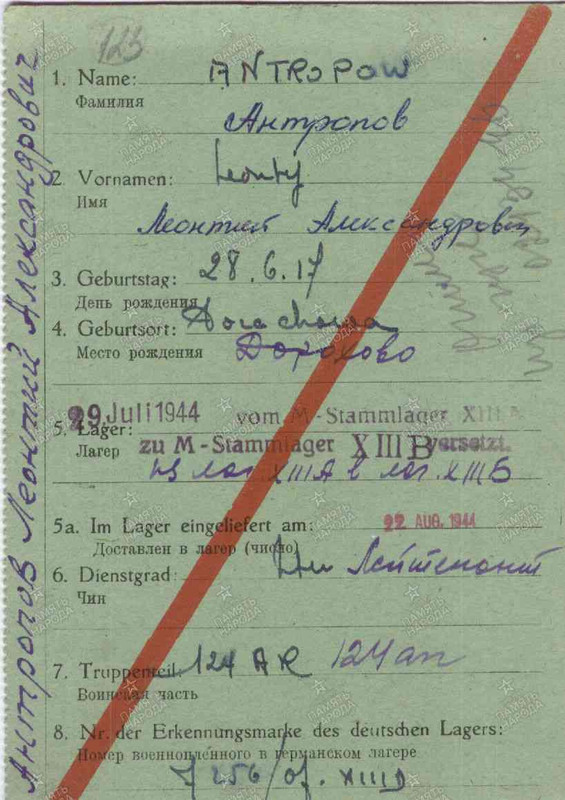 123
1. Name: ANTROPOW
Фамилия
Антропов
2. Vornamen: Leonty
Имя
Леонтий Александрович
3. Geburtstag: 28.6.17
День рождения
4. Geburtsort: Dorochowa
Место рождения Дорохово
29. Juli 1944 vom M-Stammlager XIII A
5. Lager: zu M-Stammlager XIII B versetzt.
Лагер
из лаг. XIII А в лаг. XIII Б
5a. Im Lager eingeliefert am: 22 AUG. 1944
Доставлен в лагер (число)
6. Dienstgrad: Ltn Лейтенант
Чин
7. Truppenteil: 124 AR 124 ап
Воинская часть
8. Nr. der Erkennungsmarke des deutschen Lagers:
Номер военнопленного в германском лагере
7256/of. XIII D
Антропов Леонтий Александрович
ПАМЯТЬ НАРОДА